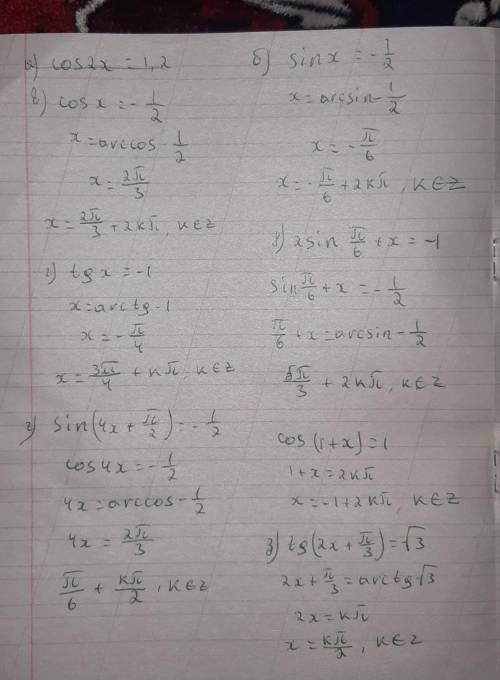 а) cos2x = 1,2
в) cos x = -1/2
x = arccos -1/2
x = 2π/3
x = 2π/3 + 2kπ, k∈Z
г) tg x = -1
x = arctg -1
x = -π/4
x = 3π/4 + kπ, k∈Z
sin(4x + π/2) = -1/2
cos4x = -1/2
4x = arccos -1/2
4x = 2π/3
π/6 + kπ/2, k∈Z
б) sin x = -1/2
x = arcsin -1/2
x = -π/6
x = -π/6 + 2kπ, k∈Z
2sin π/6 + x = -1
sin π/6 + x = -1/2
π/6 + x = arcsin -1/2
5π/3 + 2kπ, k∈Z
cos(1+x) = 1
1+x = 2kπ
x = -1 + 2kπ, k∈Z
з) tg(2x + π/3) = √3
2x + π/3 = arctg√3
2x = kπ
x = kπ/2, k∈Z